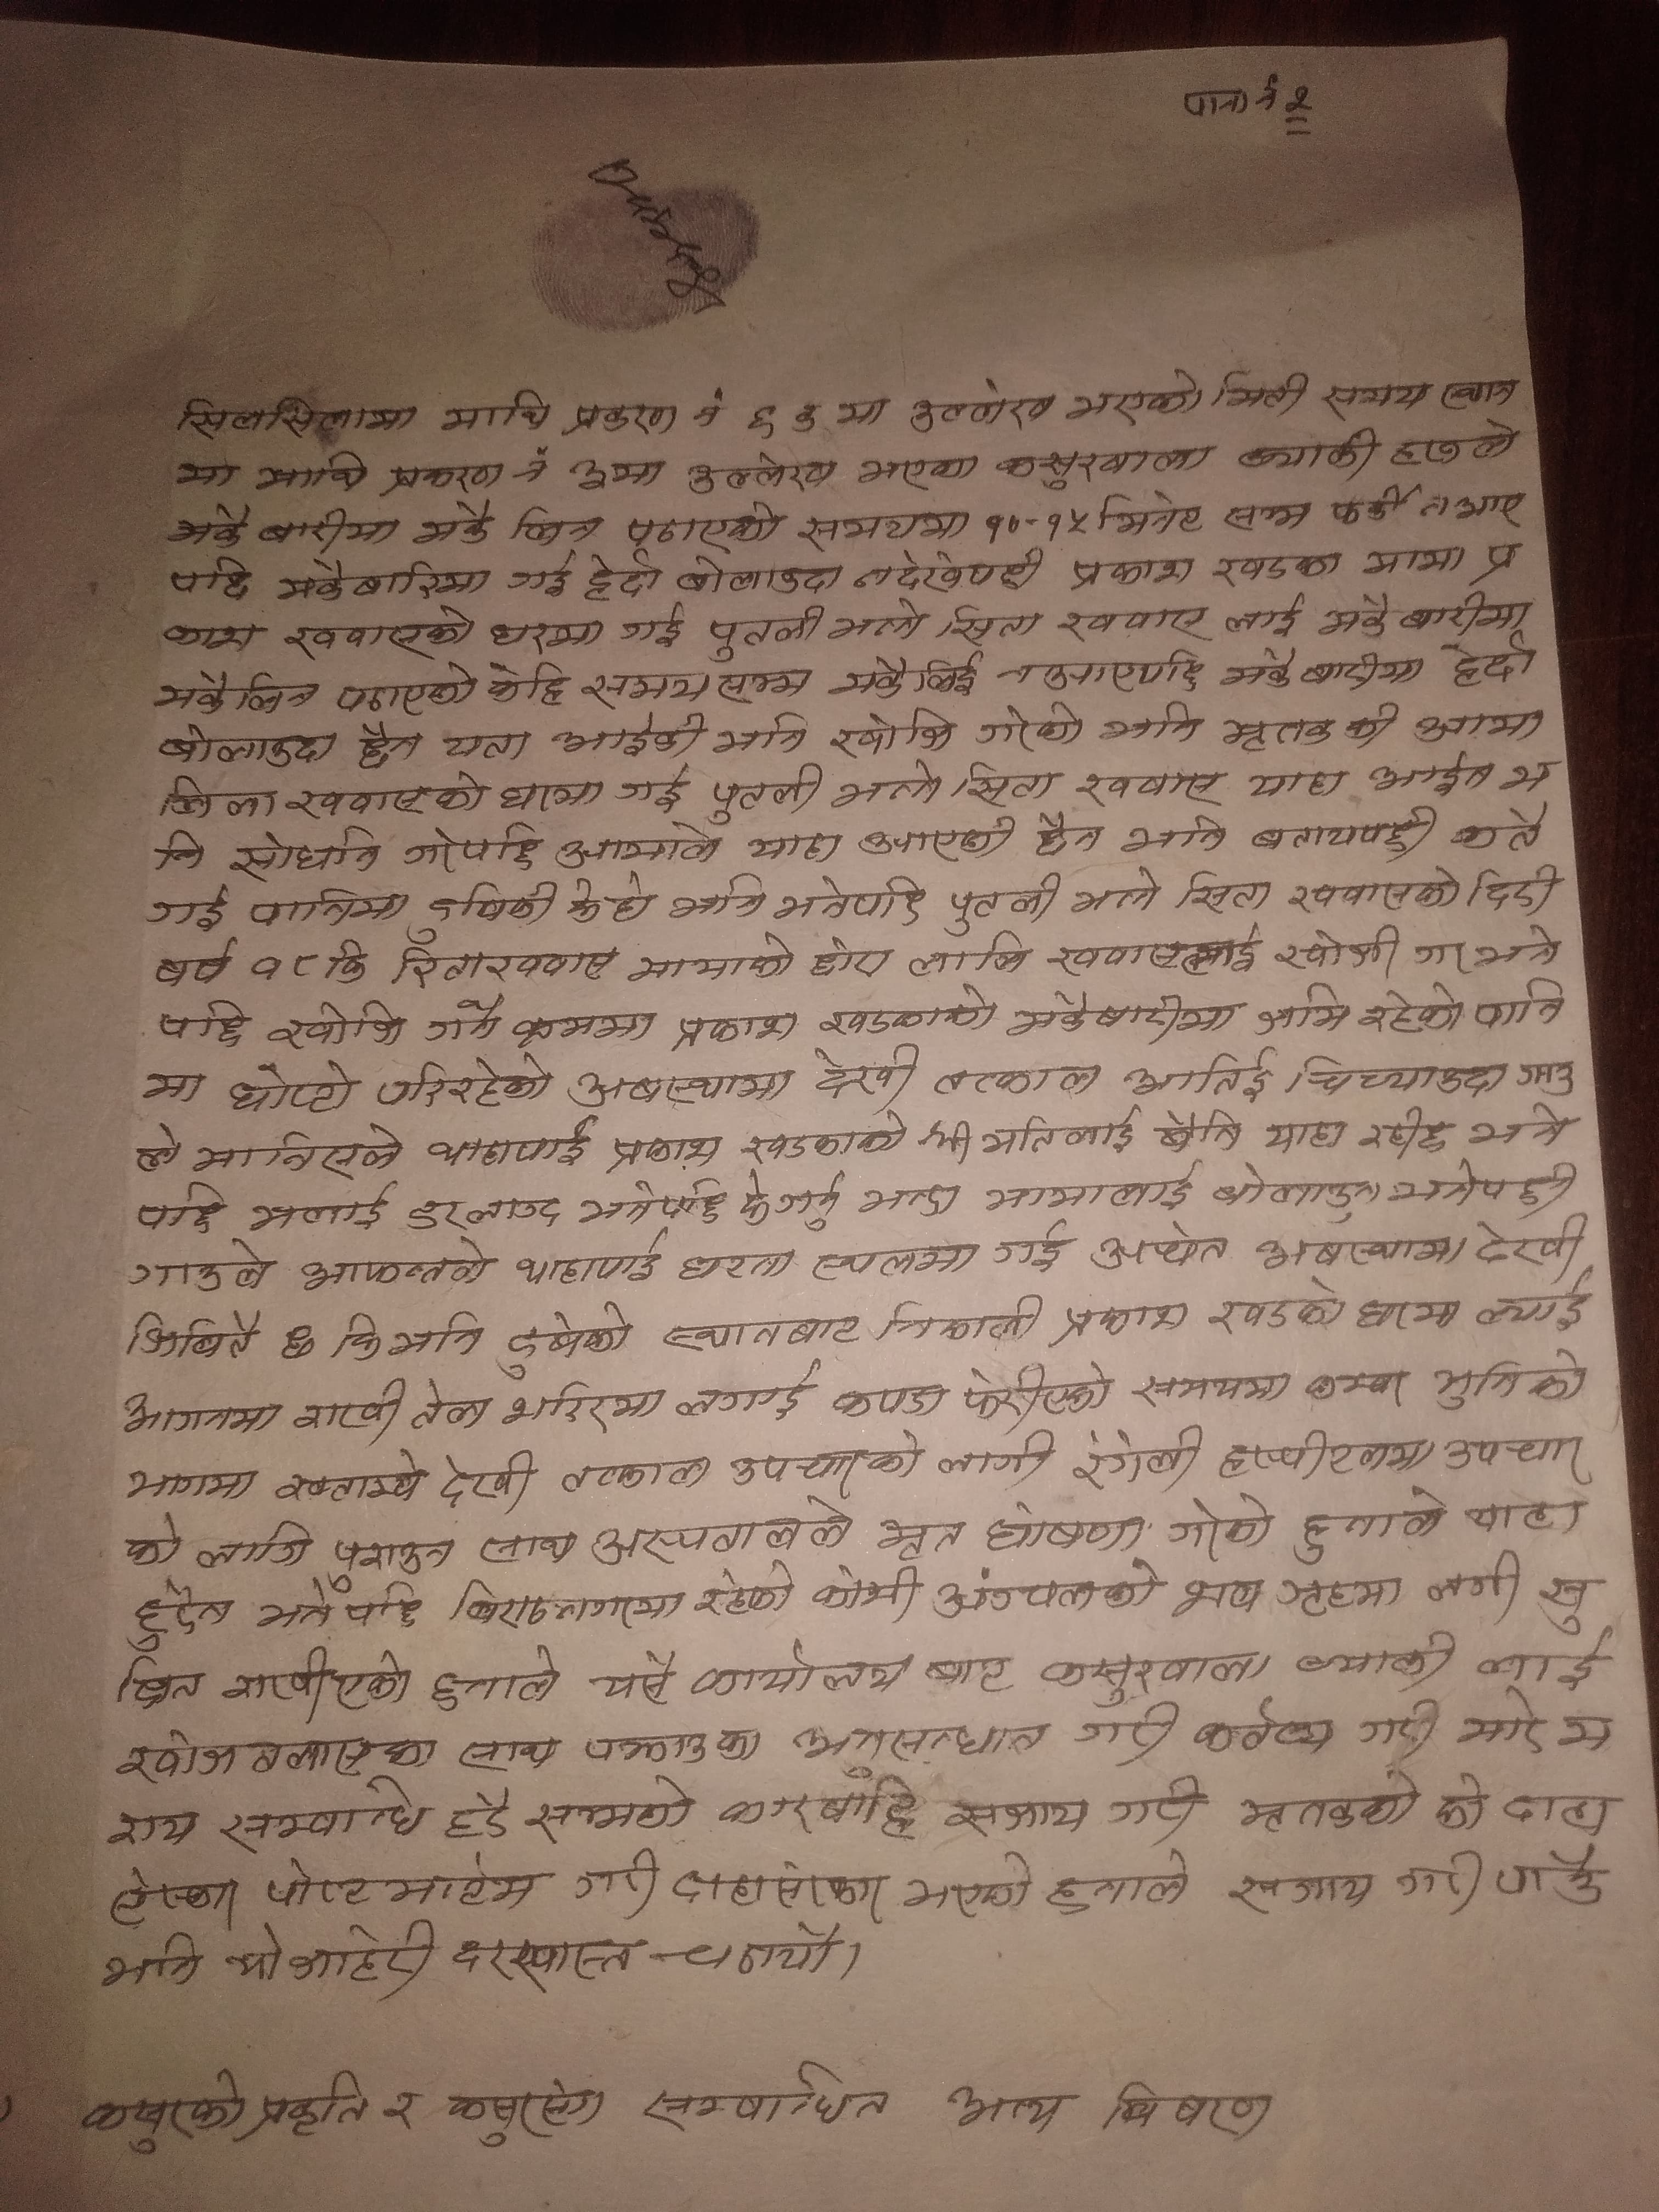 पाना नं २
सिलसिलामा माथि प्रकरण नं ६ क मा उल्लेख भएको मिती समय स्थान
मा माथि प्रकरण नं ३मा उल्लेख भएका कसुरवाला ब्याक्ती हरुले
मकै बारीमा मकै लिन पठाएको समयमा १०-१५ मिनेट सम्म फर्की नआए
पछि मकैबारिमा गई हेर्दा बोलाउदा नदेखेपछी प्रकाश खडका मामा प्र
काश खवासको घरमा गई पुतली भन्ने सिता खवास लाई मकै बारीमा
मकैलिन पठाएको केहि समय सम्म मकैलिई नआएपछि मकै बारीमा हेर्दा
बोलाउदा छैन यता आईकी भनि खोजि गरेको भनि मृतक की आमा
लिला खवासको घरमा गई पुतली भन्ने सिता खवास याहा आईन भ
नि सोधनि गरेपछि आमाले याहा आएकी छैन भनि बतायपछी कतै
गई पानिमा डुबिकी केहो भनि भनेपछि पुतली भन्ने सिता खवासको दिदी
बर्ष १८ कि रिता खवास मामाको छोरा लाजि खवासलाई खोजी गर भने
पछि खोजि गर्ने क्रममा प्रकाश खडकाको मकैबारीमा जमि रहेको पानि
मा घोप्टो परिरहेको अबस्थामा देखी तत्काल आत्तिई चिच्याउदा गाउ
ले मानिसले थाहापाई प्रकाश खडकाको श्री मतिलाई बैनि याहा रहीछ भने
पछि मलाई डरलाग्द भनेपछि के गर्नु भन्दा मामालाई बोलाउन भनेपछी
गाउले आफन्तले थाहापाई घटना स्थलमा गई अचेत अबस्थामा देखी
जिबितै छ कि भनि डुबेको स्थानबाट निकाली प्रकाश खडको घरमा ल्याई
आगनमा राखी तेल शरिरमा लगाई कपडा फेरीएको समयमा कम्बर मुनिको
भागमा रक्ताम्ये देखी तत्काल उपचारको लागी रंगेली हस्पीटलमा उपचार
को लागि पुराउन साथ अस्पतालले मृत घोषणा गरेको हुनाले याहा
हुदैन भनेपछि बिराटनगरमा रहेको कोशी अंञ्चलको शव गृहमा लगी सु
क्षित राखीएको हुनाले यसै कार्यालय बाट कसुरवाला ब्याक्ती लाई
खोज तलासका साथ पक्राउका अनुसन्धान गरी कर्तव्य गरी मारे म
राय सम्बान्धि हदै सम्मको कारबाहि सजाय गरी मृतकको को दाहा
संस्कार पोष्टमार्टम गरी दाहासंस्कार भएको हुनाले सजाय गरी पाउँ
भनि यो जाहेरी दरखास्त चढायौ।
कसुरको प्रकृति र कसुरसंग सम्बान्धित अन्य बिबरण